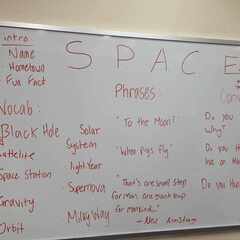 intro
Name
Hometown
Fun Fact
SPACE
Vocab:
Black Hole
Satellite
Space Station
Gravity
Orbit
Solar
System
light Year
Supernova
Milky Way
Phrases
"To the Moon!"
"When Pigs fly"
"That's one small step
for man, one giant leap
for mankind."
- Neil Armstrong
Do you
Why?
Do you th
live on M
Do you tha